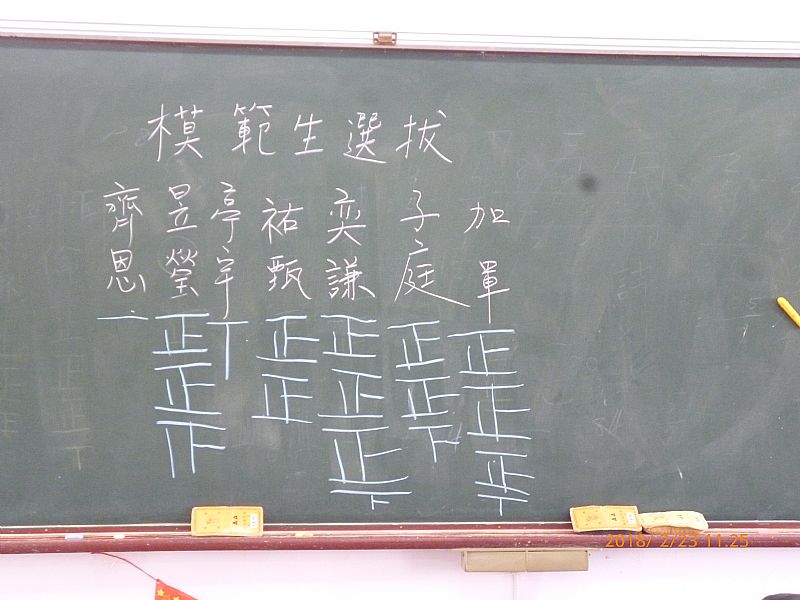 模範生選拔
齊恩 一
昱瑩 正正
亭宇 丅
祐甄 正正
奕謙 正正正下
子庭 正正下
加 正正正下
2018/ 2/23 11:25